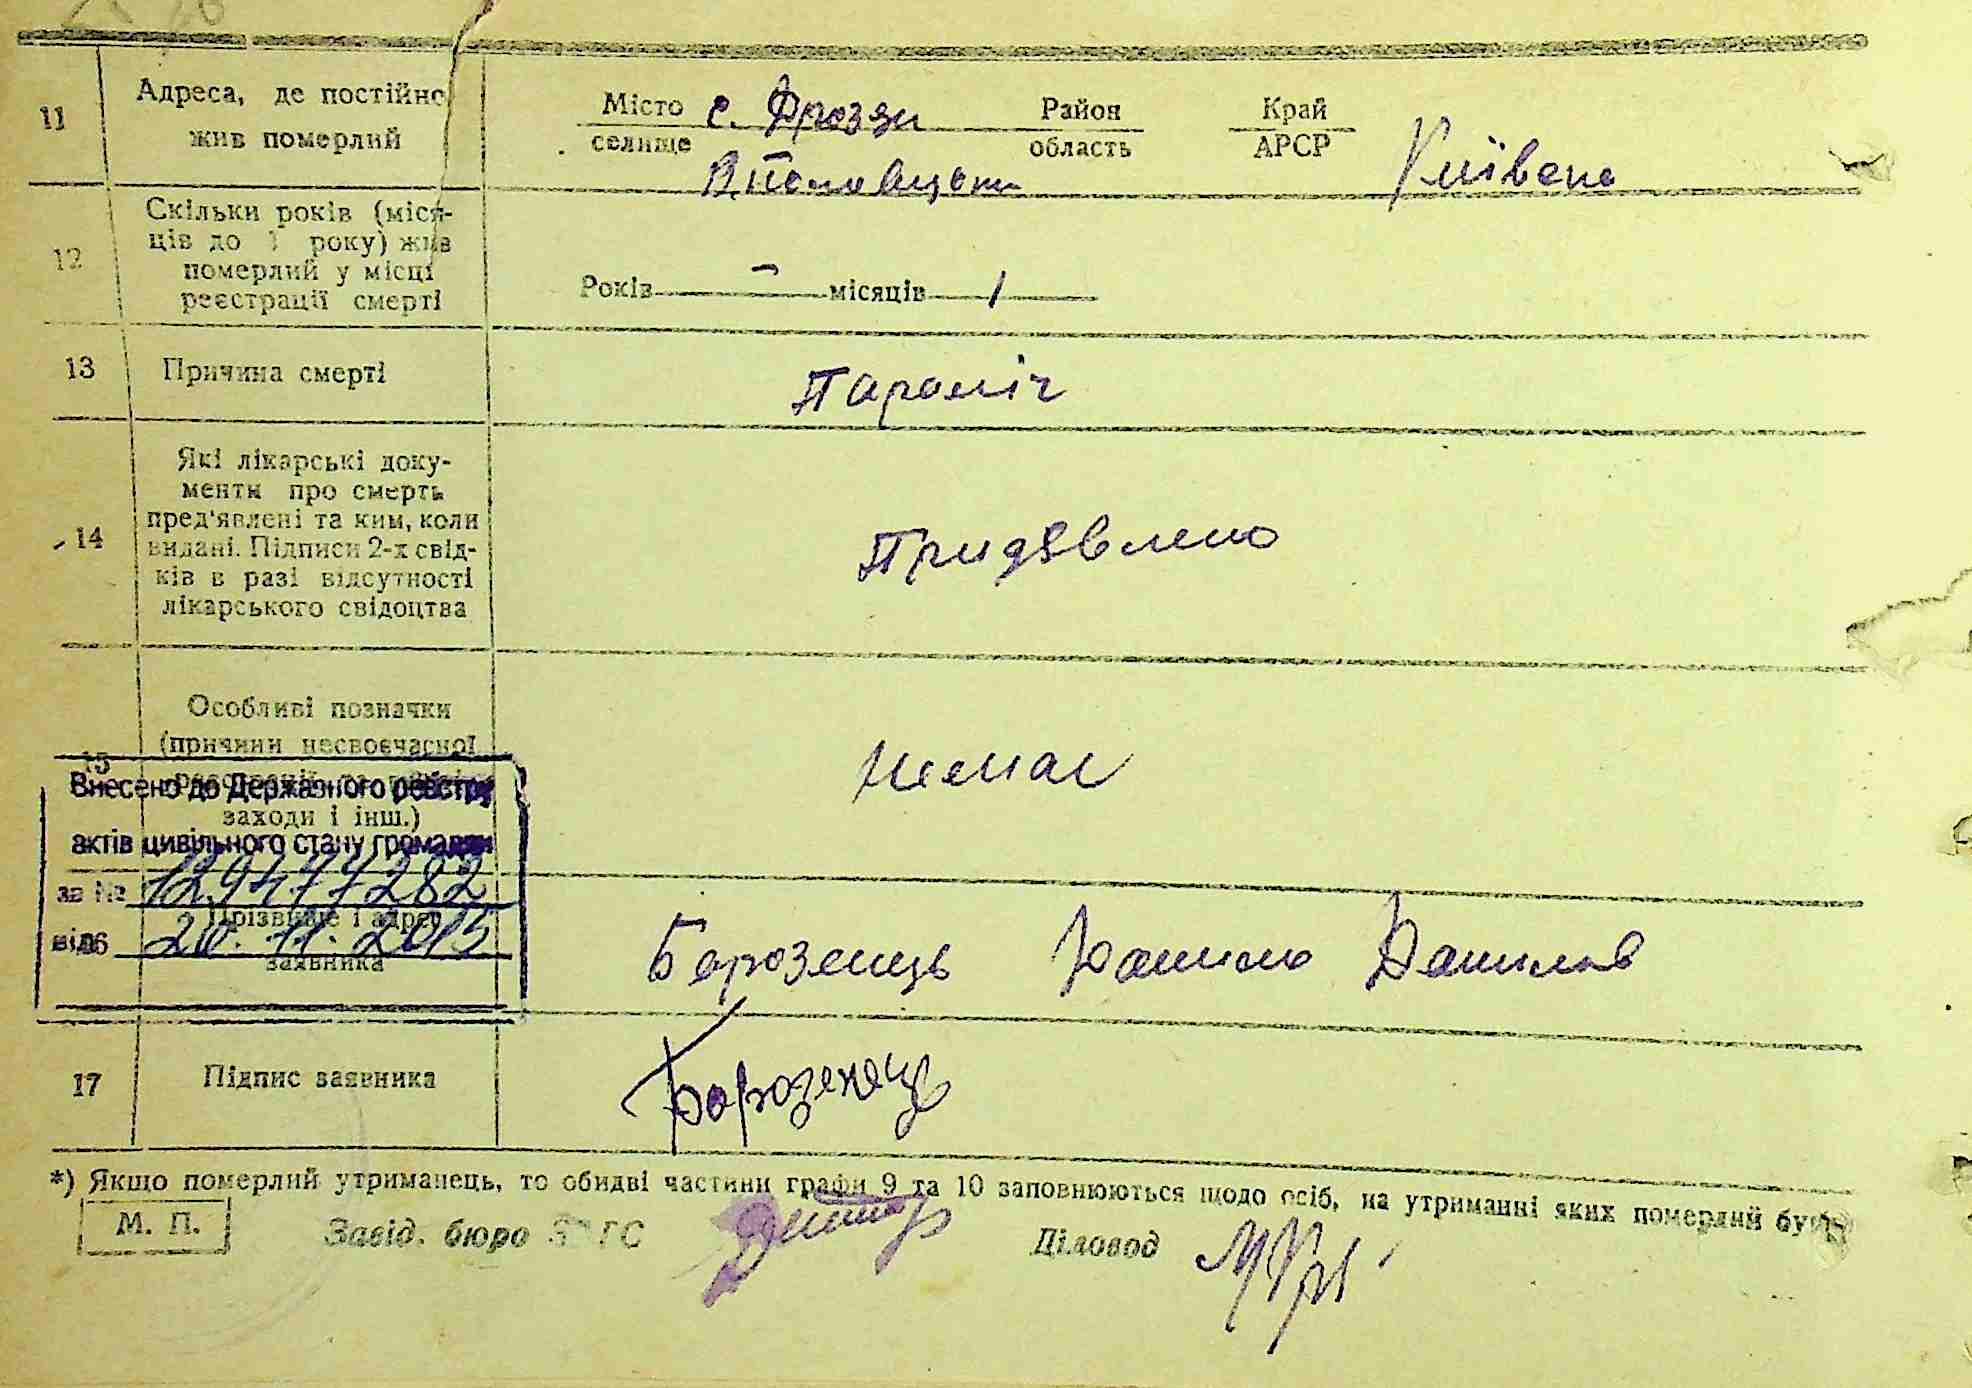 11
Адреса, де постійно
жив померлий
Місто с. Дрозди Район Край
селище область АРСР
В. Половецьк Київська
12
Скільки років (міся-
ців до 1 року) жив
померлий у місці
реєстрації смерті
Років — місяців 1
13
Причина смерті
Параліч
14
Які лікарські доку-
менти про смерть
пред'явлені та ким, коли
видані. Підписи 2-х свід-
ків в разі відсутності
лікарського свідоцтва
Придявлено
15
Особливі позначки
(причини несвоєчасної
заходи і інш.)
немає
Внесено до Державного реєстру
актів цивільного стану громадян
за № 12947 7282
від 20. 11. 2015
Прізвище і адрес
заявника
Борозенець Данило Данилов
17
Підпис заявника
Борозенець
*) Якщо померлий утриманець, то обидві частини графи 9 та 10 заповнюються щодо осіб, на утриманні яких померлий був.
М. П.
Завід. бюро ЗАГС
Діловод